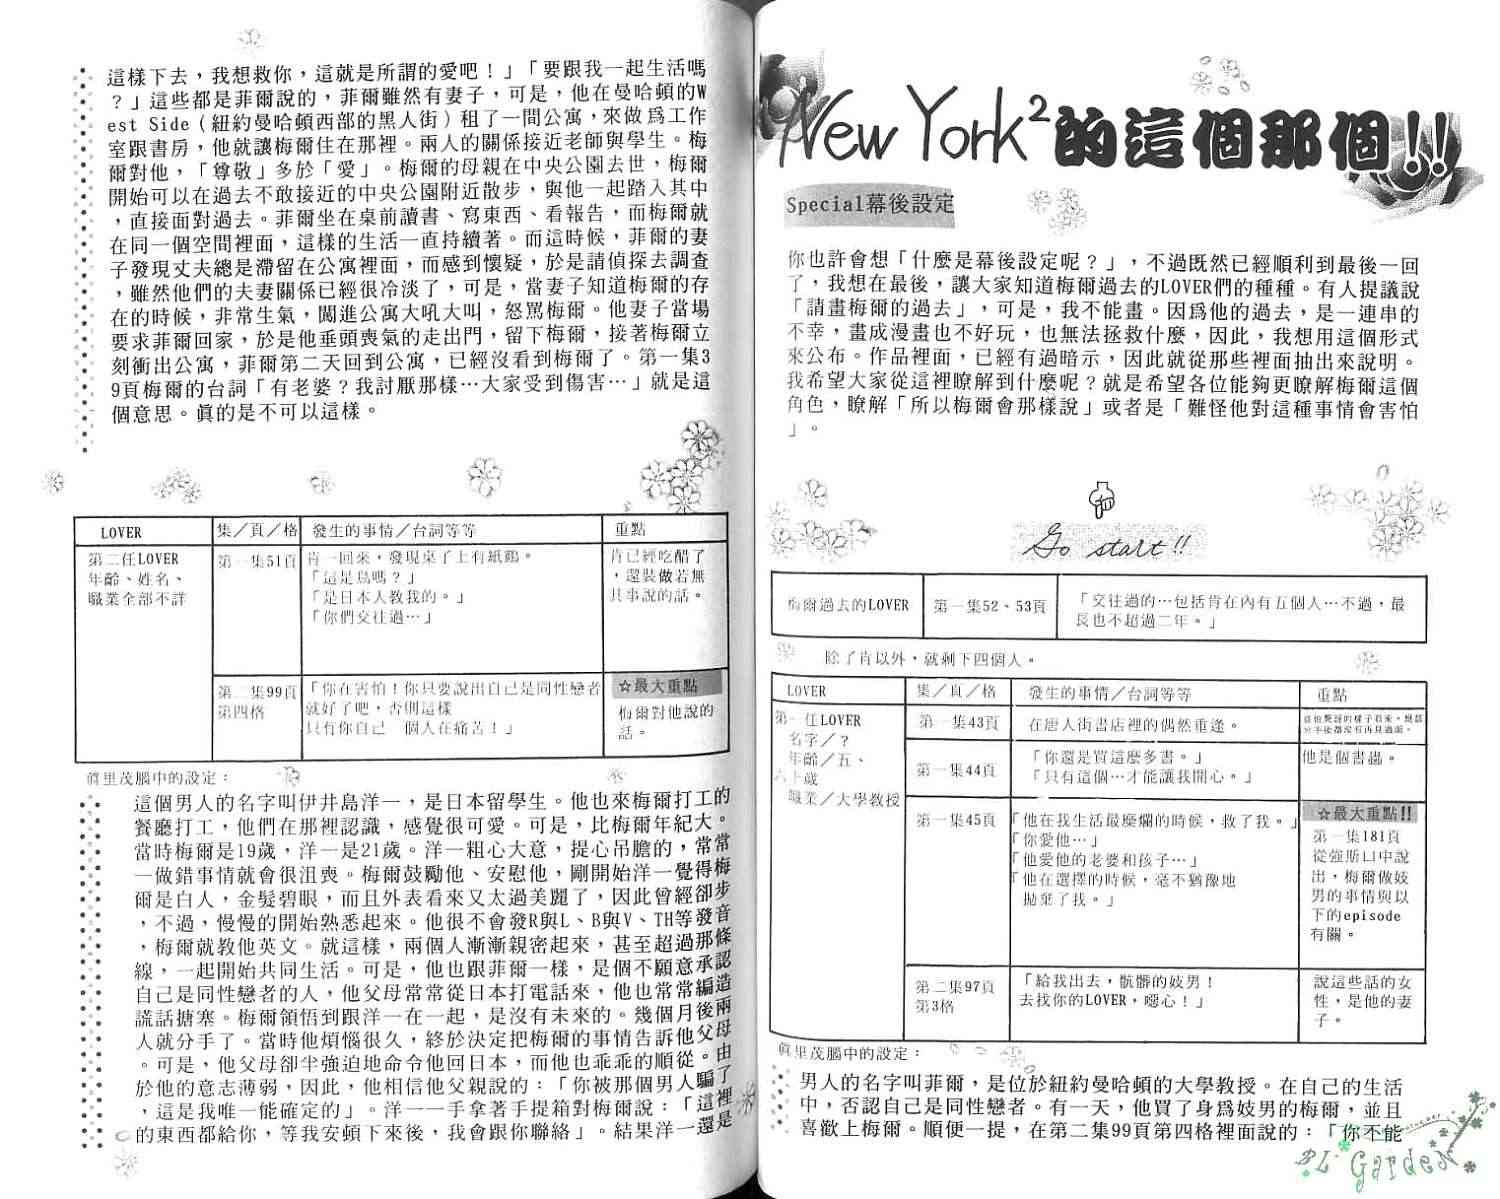 New York²的這個那個!!
Special幕後設定
你也許會想「什麼是幕後設定呢？」，不過既然已經順利到最後一回
了，我想在最後，讓大家知道梅爾過去的LOVER們的種種。有人提議說
「請畫梅爾的過去」，可是，我不能畫。因爲他的過去，是一連串的
不幸，畫成漫畫也不好玩，也無法拯救什麼，因此，我想用這個形式
來公布。作品裡面，已經有過暗示，因此就從那些裡面抽出來說明。
我希望大家從這裡瞭解到什麼呢？就是希望各位能夠更瞭解梅爾這個
角色，瞭解「所以梅爾會那樣說」或者是「難怪他對這種事情會害怕
」。
Go start!!
梅爾過去的LOVER
第一集52、53頁
「交往過的…包括肯在內有五個人…不過，最
長也不超過二年。」
除了肯以外，就剩下四個人。
LOVER
集／頁／格
發生的事情／台詞等等
重點
第一任LOVER
名字／？
年齡／五、
六十歲
職業／大學教授
第一集43頁
在唐人街書店裡的偶然重逢。
第一集44頁
「你還是買這麼多書。」
「只有這個…才能讓我開心。」
他是個書蟲。
第一集45頁
「他在我生活最糜爛的時候，救了我。」
「你愛他…」
「他愛他的老婆和孩子…」
「他在選擇的時候，毫不猶豫地
拋棄了我。」
☆最大重點!!
第一集181頁
從強斯口中說
出，梅爾做妓
男的事情與以
下的episode
有關。
第二集97頁
第3格
「給我出去，骯髒的妓男！
去找你的LOVER，噁心！」
說這些話的女
性，是他的妻
子。
眞里茂腦中的設定：
男人的名字叫菲爾，是位於紐約曼哈頓的大學教授。在自己的生活
中，否認自己是同性戀者。有一天，他買了身爲妓男的梅爾，並且
喜歡上梅爾。順便一提，在第二集99頁第四格裡面說的：「你不能
這樣下去，我想救你，這就是所謂的愛吧！」「要跟我一起生活嗎
？」這些都是菲爾說的，菲爾雖然有妻子，可是，他在曼哈頓的W
est Side（紐約曼哈頓西部的黑人街）租了一間公寓，來做爲工作
室跟書房，他就讓梅爾住在那裡。兩人的關係接近老師與學生。梅
爾對他，「尊敬」多於「愛」。梅爾的母親在中央公園去世，梅爾
開始可以在過去不敢接近的中央公園附近散步，與他一起踏入其中
，直接面對過去。菲爾坐在桌前讀書、寫東西、看報告，而梅爾就
在同一個空間裡面，這樣的生活一直持續著。而這時候，菲爾的妻
子發現丈夫總是滯留在公寓裡面，而感到懷疑，於是請偵探去調查
，雖然他們的夫妻關係已經很冷淡了，可是，當妻子知道梅爾的存
在的時候，非常生氣，闖進公寓大吼大叫，怒罵梅爾。他妻子當場
要求菲爾回家，於是他垂頭喪氣的走出門，留下梅爾，接著梅爾立
刻衝出公寓，菲爾第二天回到公寓，已經沒看到梅爾了。第一集3
9頁梅爾的台詞「有老婆？我討厭那樣…大家受到傷害…」就是這
個意思。眞的是不可以這樣。
LOVER
集／頁／格
發生的事情／台詞等等
重點
第二任LOVER
年齡、姓名、
職業全部不詳
第一集51頁
肯一回來，發現桌子上有紙鶴。
「這是鳥嗎？」
「是日本人教我的。」
「你們交往過…」
肯已經吃醋了
，還裝做若無
其事說的話。
第二集99頁
第四格
「你在害怕！你只要說出自己是同性戀者
就好了吧，否則這樣
只有你自己一個人在痛苦！」
☆最大重點
梅爾對他說的
話。
眞里茂腦中的設定：
這個男人的名字叫伊井島洋一，是日本留學生。他也來梅爾打工的
餐廳打工，他們在那裡認識，感覺很可愛。可是，比梅爾年紀大。
當時梅爾是19歲，洋一是21歲。洋一粗心大意，提心吊膽的，常常
一做錯事情就會很沮喪。梅爾鼓勵他、安慰他，剛開始洋一覺得梅
爾是白人，金髮碧眼，而且外表看來又太過美麗了，因此曾經卻步
，不過，慢慢的開始熟悉起來。他很不會發R與L、B與V、TH等發音
，梅爾就教他英文。就這樣，兩個人漸漸親密起來，甚至超過那條
線，一起開始共同生活。可是，他也跟菲爾一樣，是個不願意承認
自己是同性戀者的人，他父母常常從日本打電話來，他也常常編造
謊話搪塞。梅爾領悟到跟洋一在一起，是沒有未來的。幾個月後兩
人就分手了。當時他煩惱很久，終於決定把梅爾的事情告訴他父母
。可是，他父母卻半強迫地命令他回日本，而他也乖乖的順從。由
於他的意志薄弱，因此，他相信他父親說的：「你被那個男人騙了
，這是我唯一能確定的」。洋一一手拿著手提箱對梅爾說：「這裡
的東西都給你，等我安頓下來後，我會跟你聯絡」。結果洋一還是
BL Garden